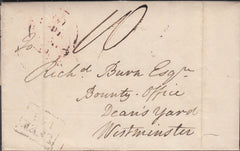 10
Rich.d Burn Esq.re
Bounty Office
Dean's Yard
Westminster